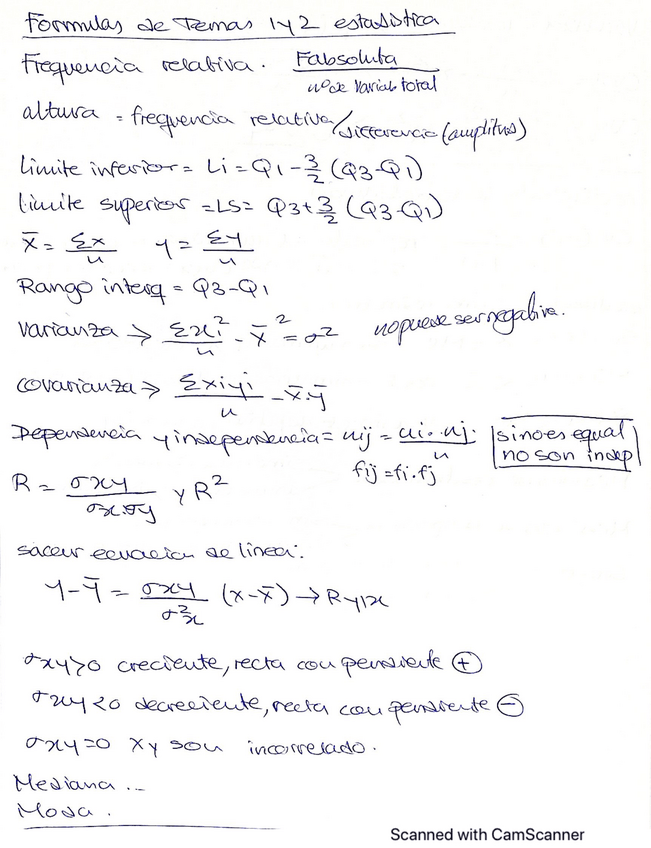 Formulas de Temas 1 y 2 estadistica
Frequencia relativa. Fabsoluta / nº de variab. total
altura = frequencia relativa/differencia (amplitud)
Limite inferior = Li = Q1 - 3/2 (Q3-Q1)
limite superior = LS = Q3 + 3/2 (Q3-Q1)
x̄ = Σx/n y = Σy/n
Rango interq = Q3-Q1
varianza → Σxi²/n - x̄² = σ² no puede ser negativa.
covarianza → Σxiyi/n - x̄.ȳ
Dependencia y independencia = nij = ni. n.j/n sino es equal
fij = fi.fj no son indep
R = σxy/σx.σy y R²
sacar ecuacion de linea:
y-ȳ = σxy/σ²x (x-x̄) → Ry|x
σxy>0 creciente, recta con pendiente ⊕
σxy<0 decreciente, recta con pendiente ⊖
σxy=0 xy son incorrelado.
Mediana ...
Moda .
Scanned with CamScanner